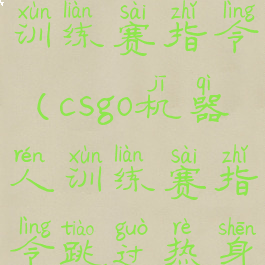 xùn liàn sài zhǐ lìng
训练赛指令
jī qì
(csgo机器
rén xùn liàn sài zhǐ
人训练赛指
lìng tiào guò rè shēn
令跳过热身